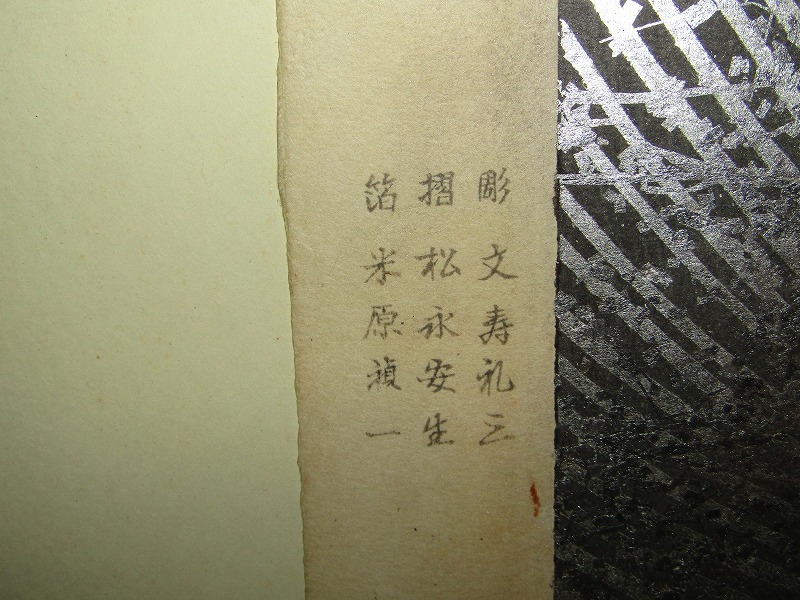 彫 文寿礼三
摺 松永安生
箔 米原禎一